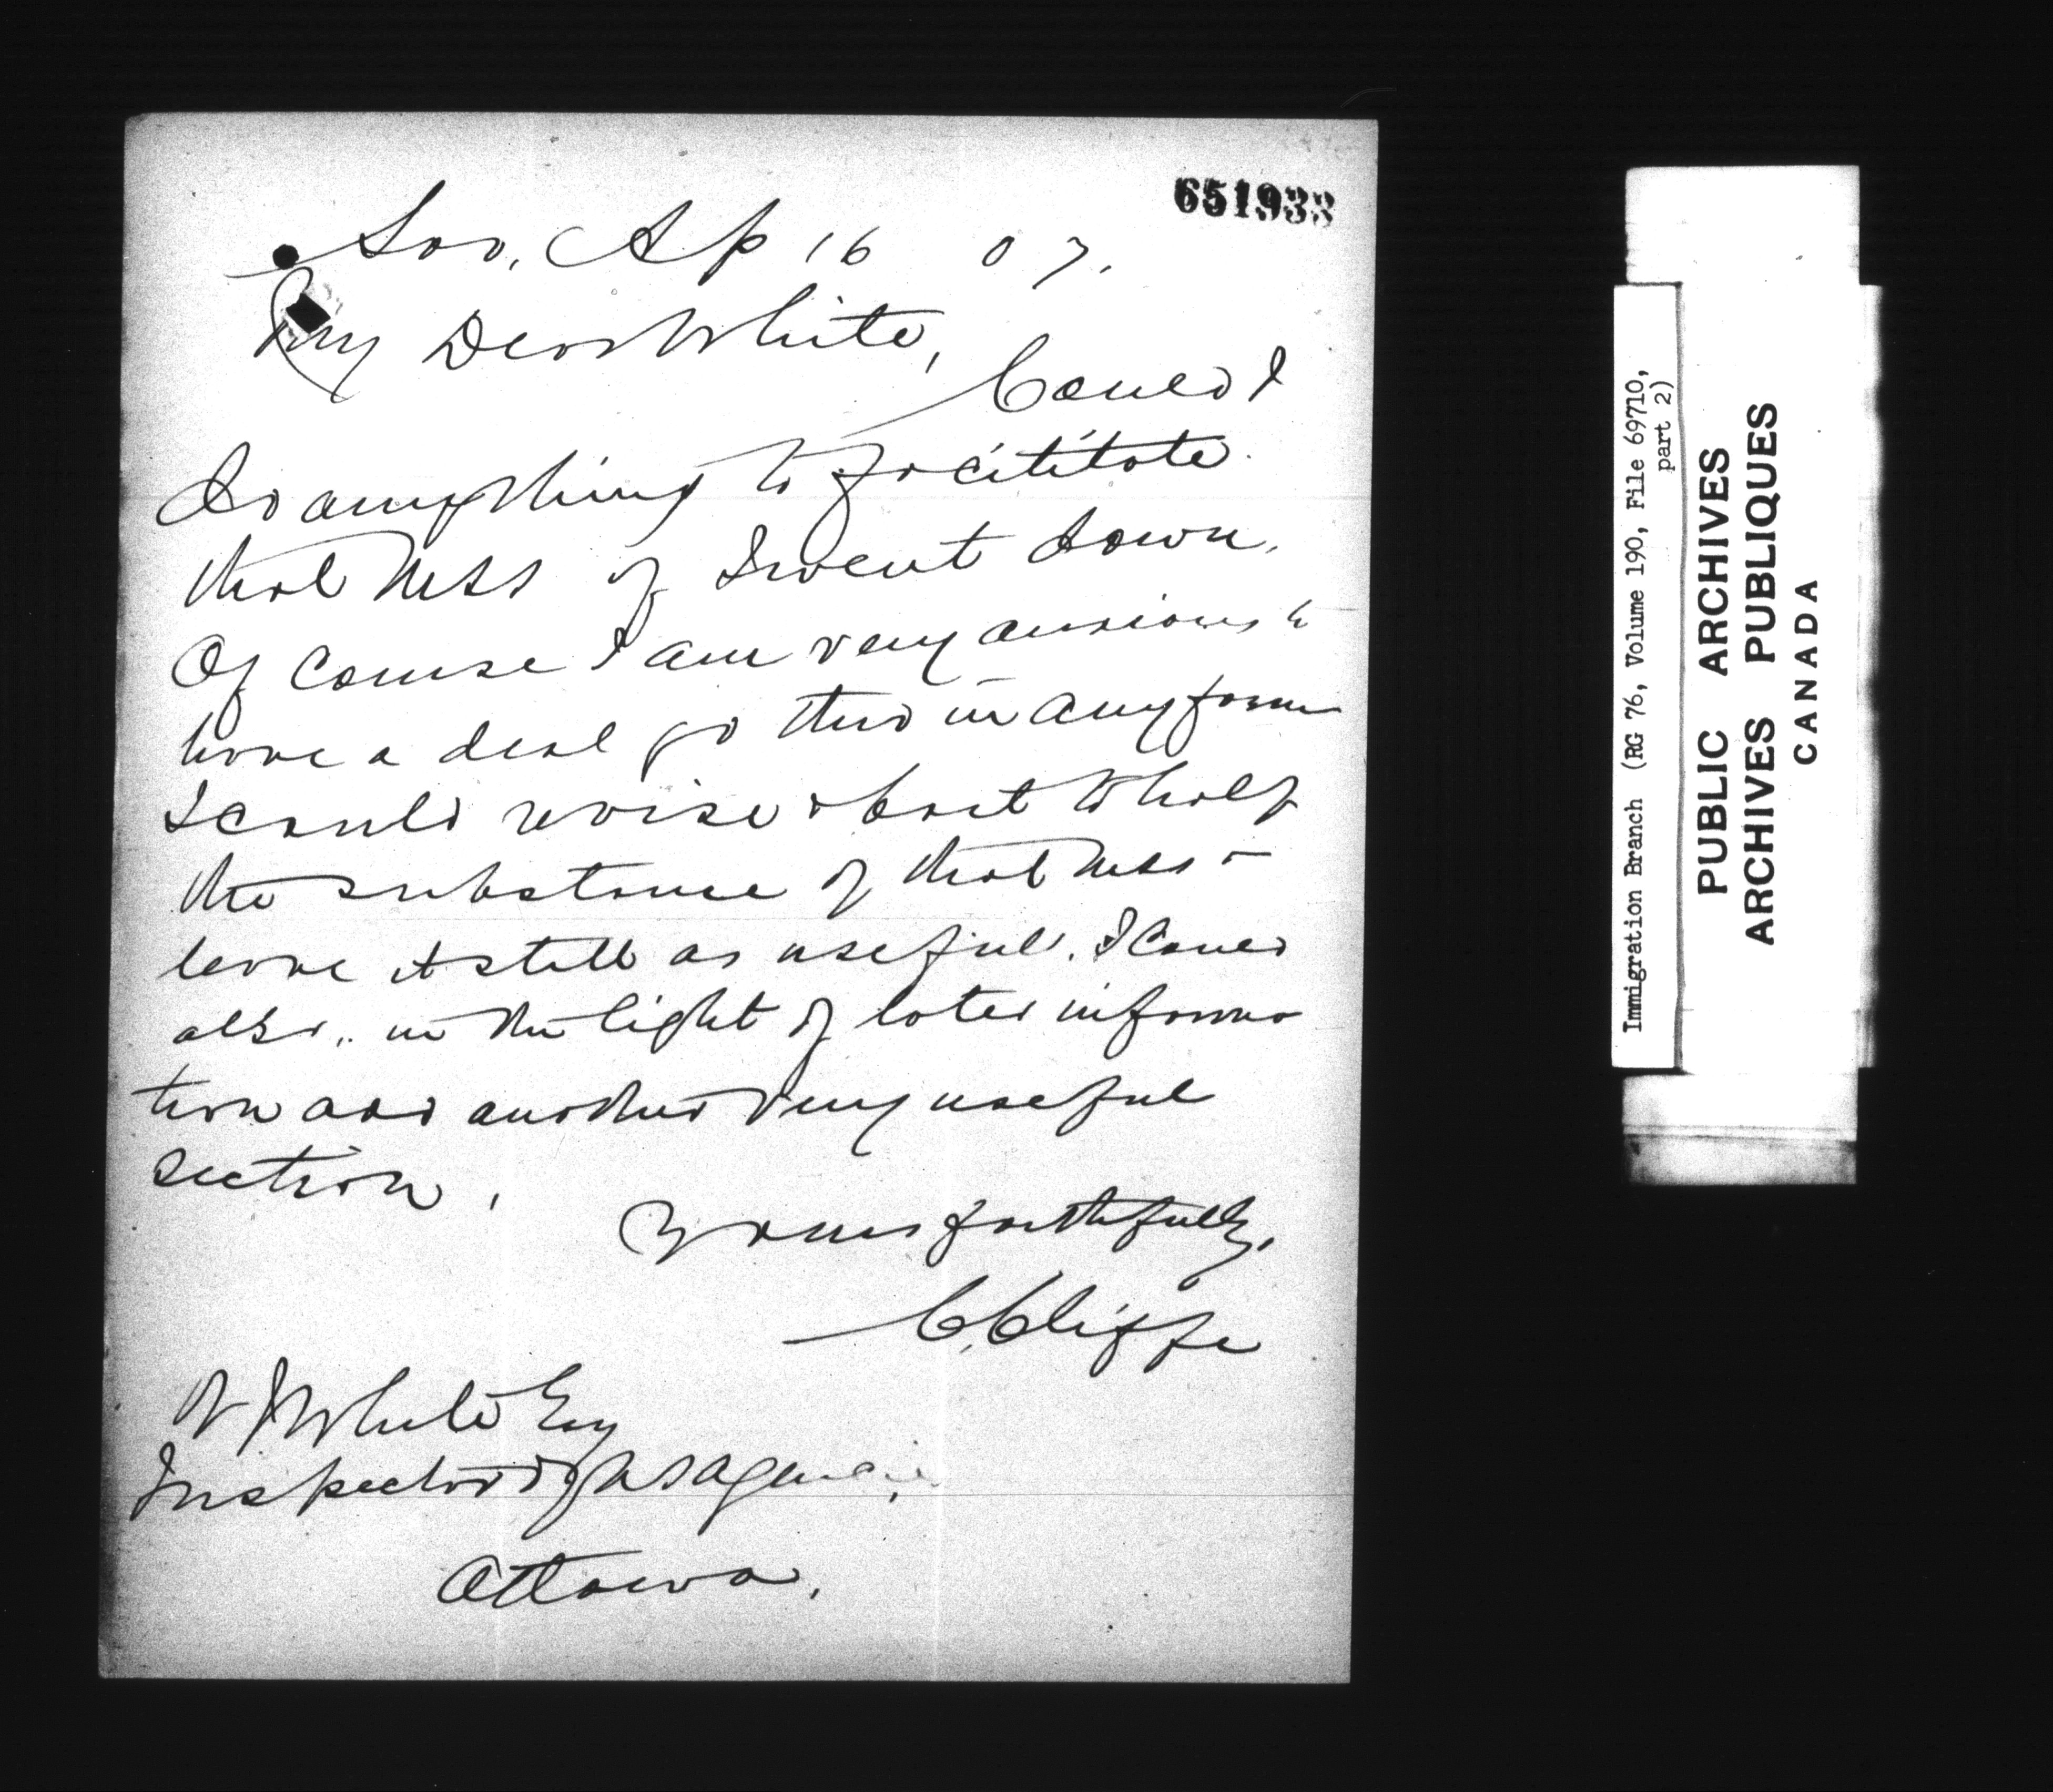 651933
Soo, Ap 16 07.
My Dear White,
Could I
do anything to facilitate
that Mss if I went down.
Of course I am very anxious to
have a deal go thro in any form
I could revise about to half
the substance of that Mss &
leave it still as useful. I could
also, in the light of later informa
tion add another very useful
section.
Yours faithfully,
C. Cliffe
W J White Esq
Inspector of US Agencies,
Ottawa.
Immigration Branch (RG 76, Volume 190, File 69710,
part 2)
PUBLIC ARCHIVES
ARCHIVES PUBLIQUES
CANADA